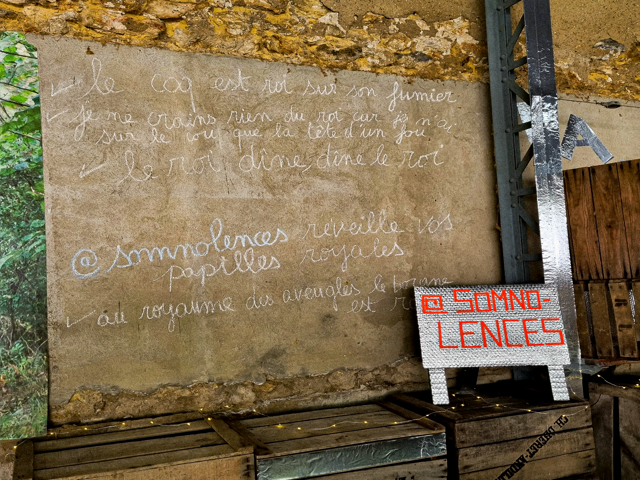 le coq est roi sur son fumier
je me crains rien du roi car je n'ai
sur le cou que la tête d'un fou
le roi dîne, dîne le roi
@somnolences réveille vos
papilles royales
au royaume des aveugles le borgne
est r
@ SOMNO-
LENCES